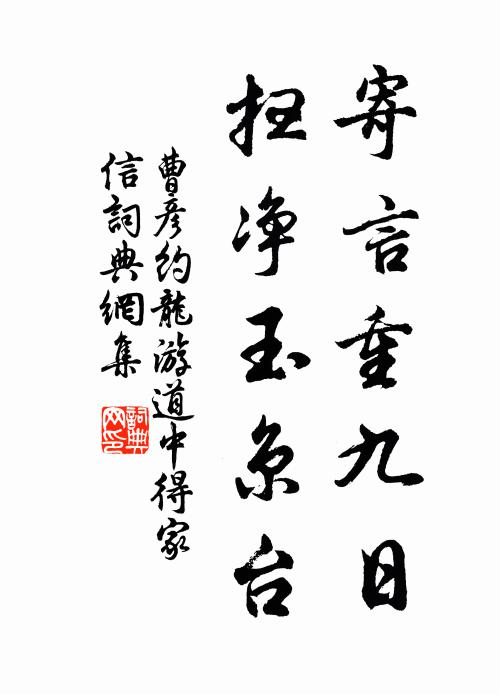 寄言重九日
扫净玉京台
曹彦约龍游道中得家
信詞典網集
詞典
网印